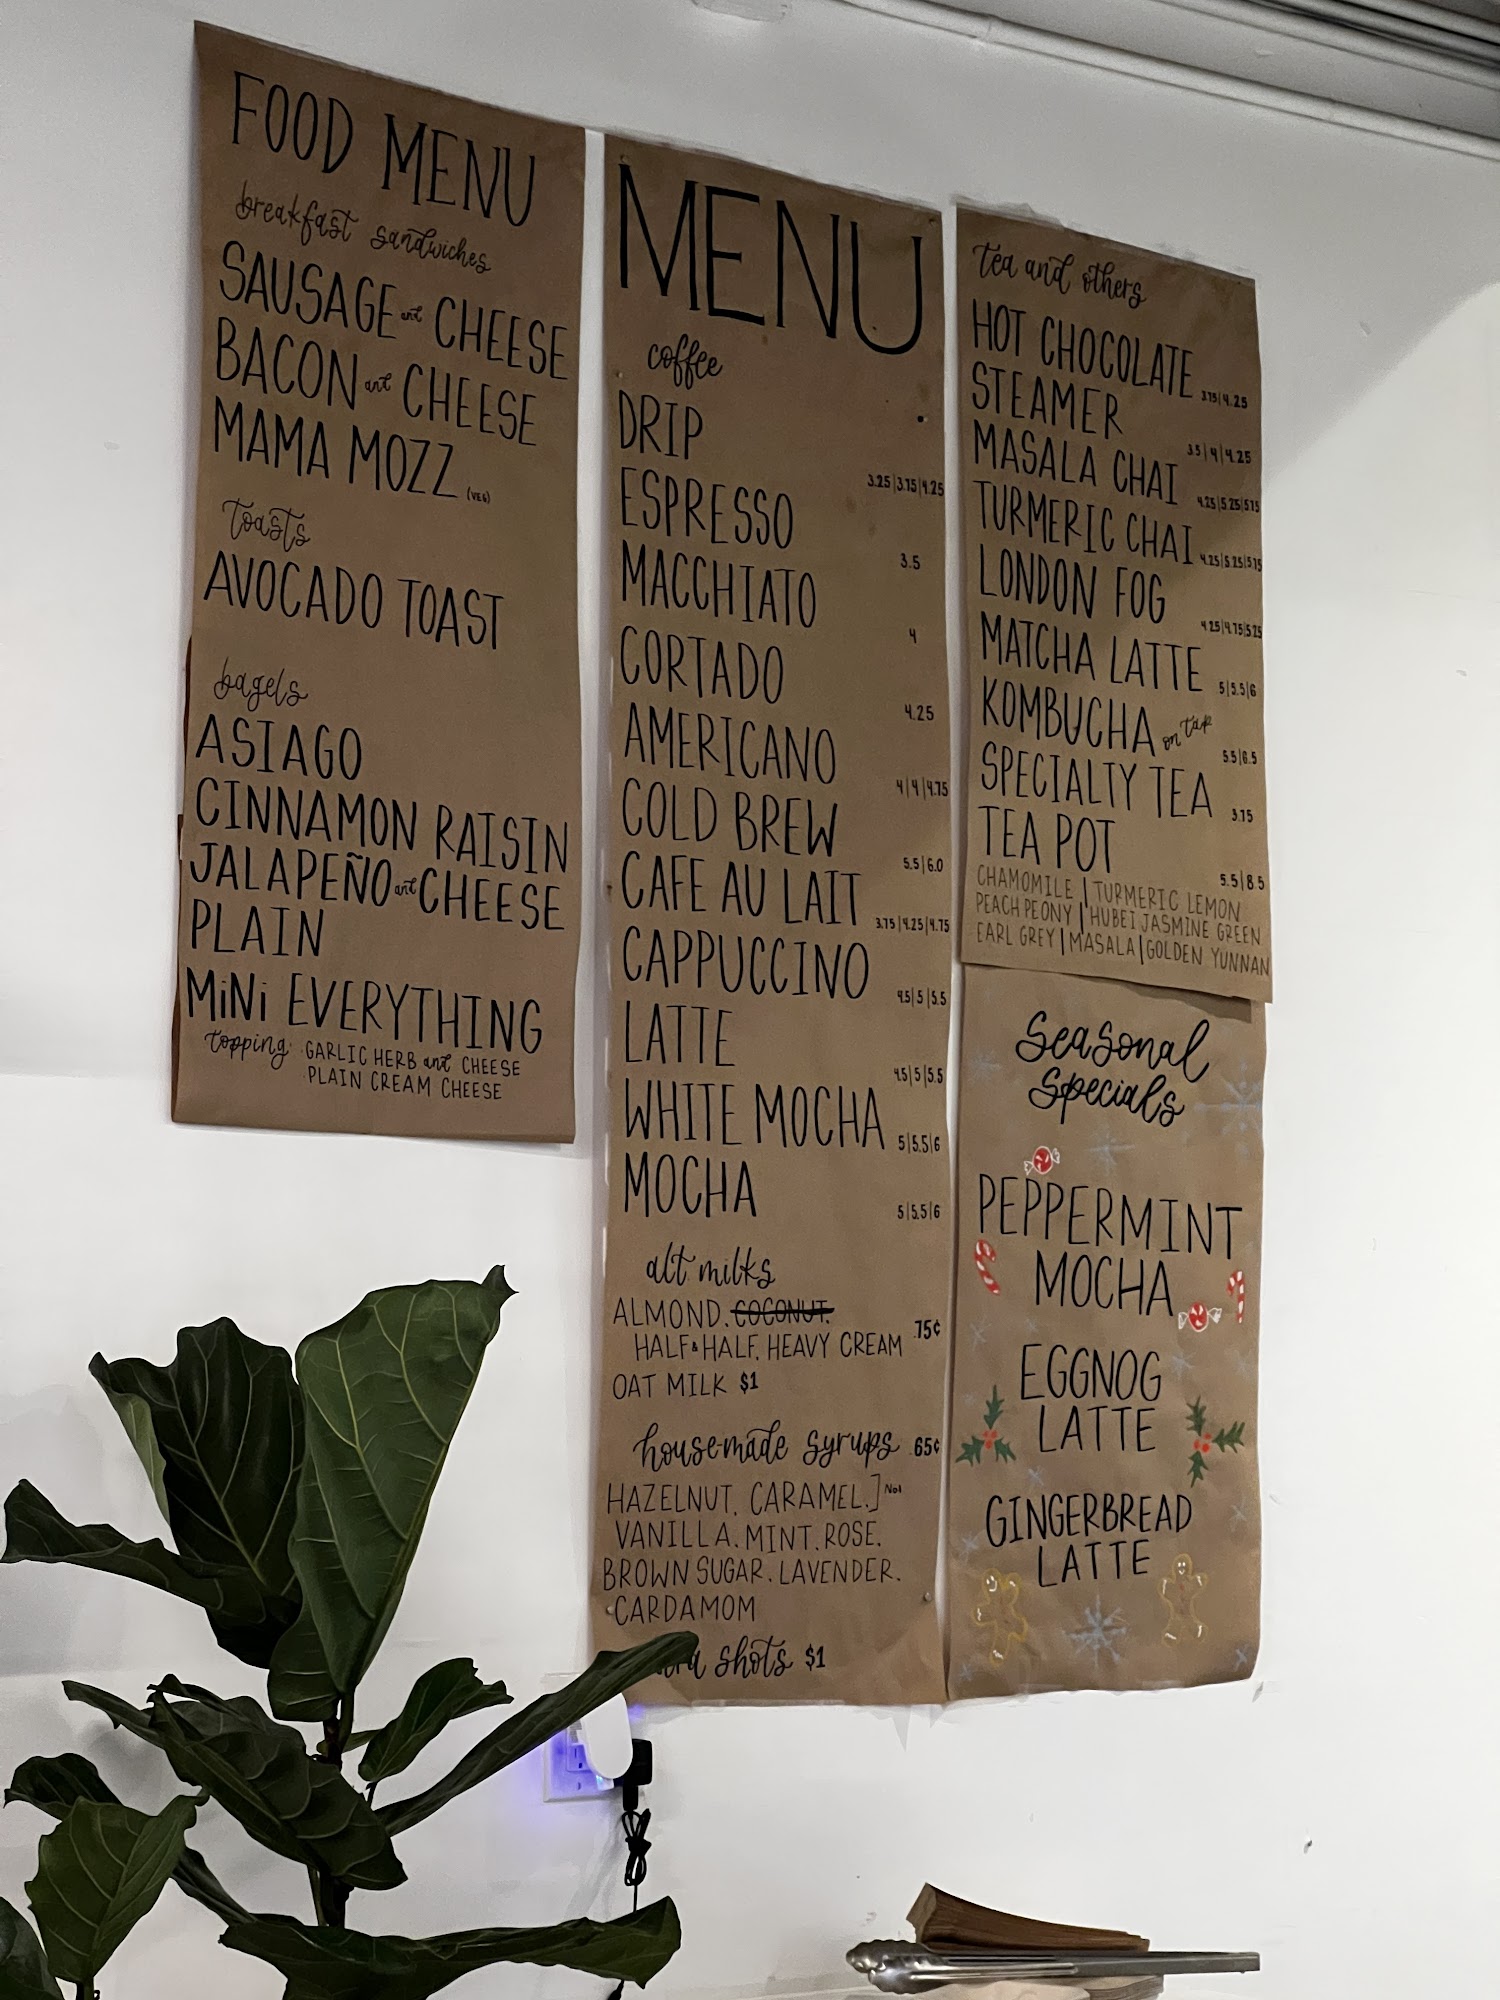 FOOD MENU
breakfast sandwiches
SAUSAGE and CHEESE
BACON and CHEESE
MAMA MOZZ (VEG)
toasts
AVOCADO TOAST
bagels
ASIAGO
CINNAMON RAISIN
JALAPEÑO and CHEESE
PLAIN
MiNi EVERYTHING
topping: GARLIC HERB and CHEESE
PLAIN CREAM CHEESE
MENU
coffee
DRIP 3.25|3.75|4.25
ESPRESSO 3.5
MACCHIATO 4
CORTADO 4.25
AMERICANO 4|4|4.75
COLD BREW 5.5|6.0
CAFE AU LAIT 3.75|4.25|4.75
CAPPUCCINO 4.5|5|5.5
LATTE 4.5|5|5.5
WHITE MOCHA 5|5.5|6
MOCHA 5|5.5|6
alt milks
ALMOND. COCONUT. .75¢
HALF & HALF. HEAVY CREAM
OAT MILK $1
housemade syrups .65¢
HAZELNUT. CARAMEL.]
VANILLA. MINT. ROSE.
BROWN SUGAR. LAVENDER.
CARDAMOM
shots $1
tea and others
HOT CHOCOLATE 3.75|4.25
STEAMER 3.5|4|4.25
MASALA CHAI 4.25|5.25|5.75
TURMERIC CHAI 4.25|5.25|5.75
LONDON FOG 4.25|4.75|5.25
MATCHA LATTE 5|5.5|6
KOMBUCHA on tap 5.5|6.5
SPECIALTY TEA 3.75
TEA POT 5.5|8.5
CHAMOMILE | TURMERIC LEMON
PEACH PEONY | HUBEI JASMINE GREEN
EARL GREY | MASALA | GOLDEN YUNNAN
Seasonal
Specials
PEPPERMINT
MOCHA
EGGNOG
LATTE
GINGERBREAD
LATTE